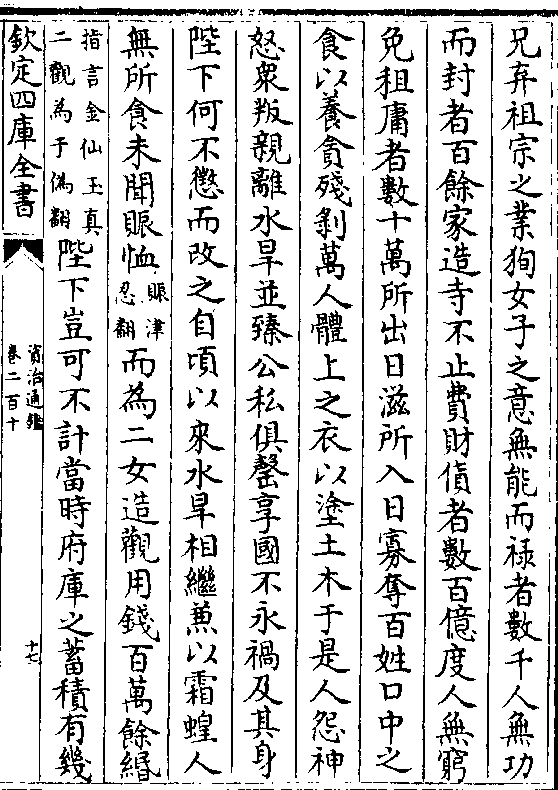 兄弃祖宗之業狥女子之意無能而禄者數千人無功
而封者百餘家造寺不止費財債者數百億度人無窮
免租庸者數十萬所出日滋所入日寡奪百姓口中之
食以養貪殘剝萬人體上之衣以塗土木于是人怨神
怒衆叛親離水旱並臻公私俱罄享國不永禍及其身
陛下何不懲而改之自頃以來水旱相繼兼以霜蝗人
無所食未聞賑恤賑津忍翻而為二女造觀用錢百萬餘緡
指言金仙玉真二觀為于偽翻陛下豈可不計當時府庫之蓄積有幾
欽定四庫全書
資治通鑑
卷二百十
十七